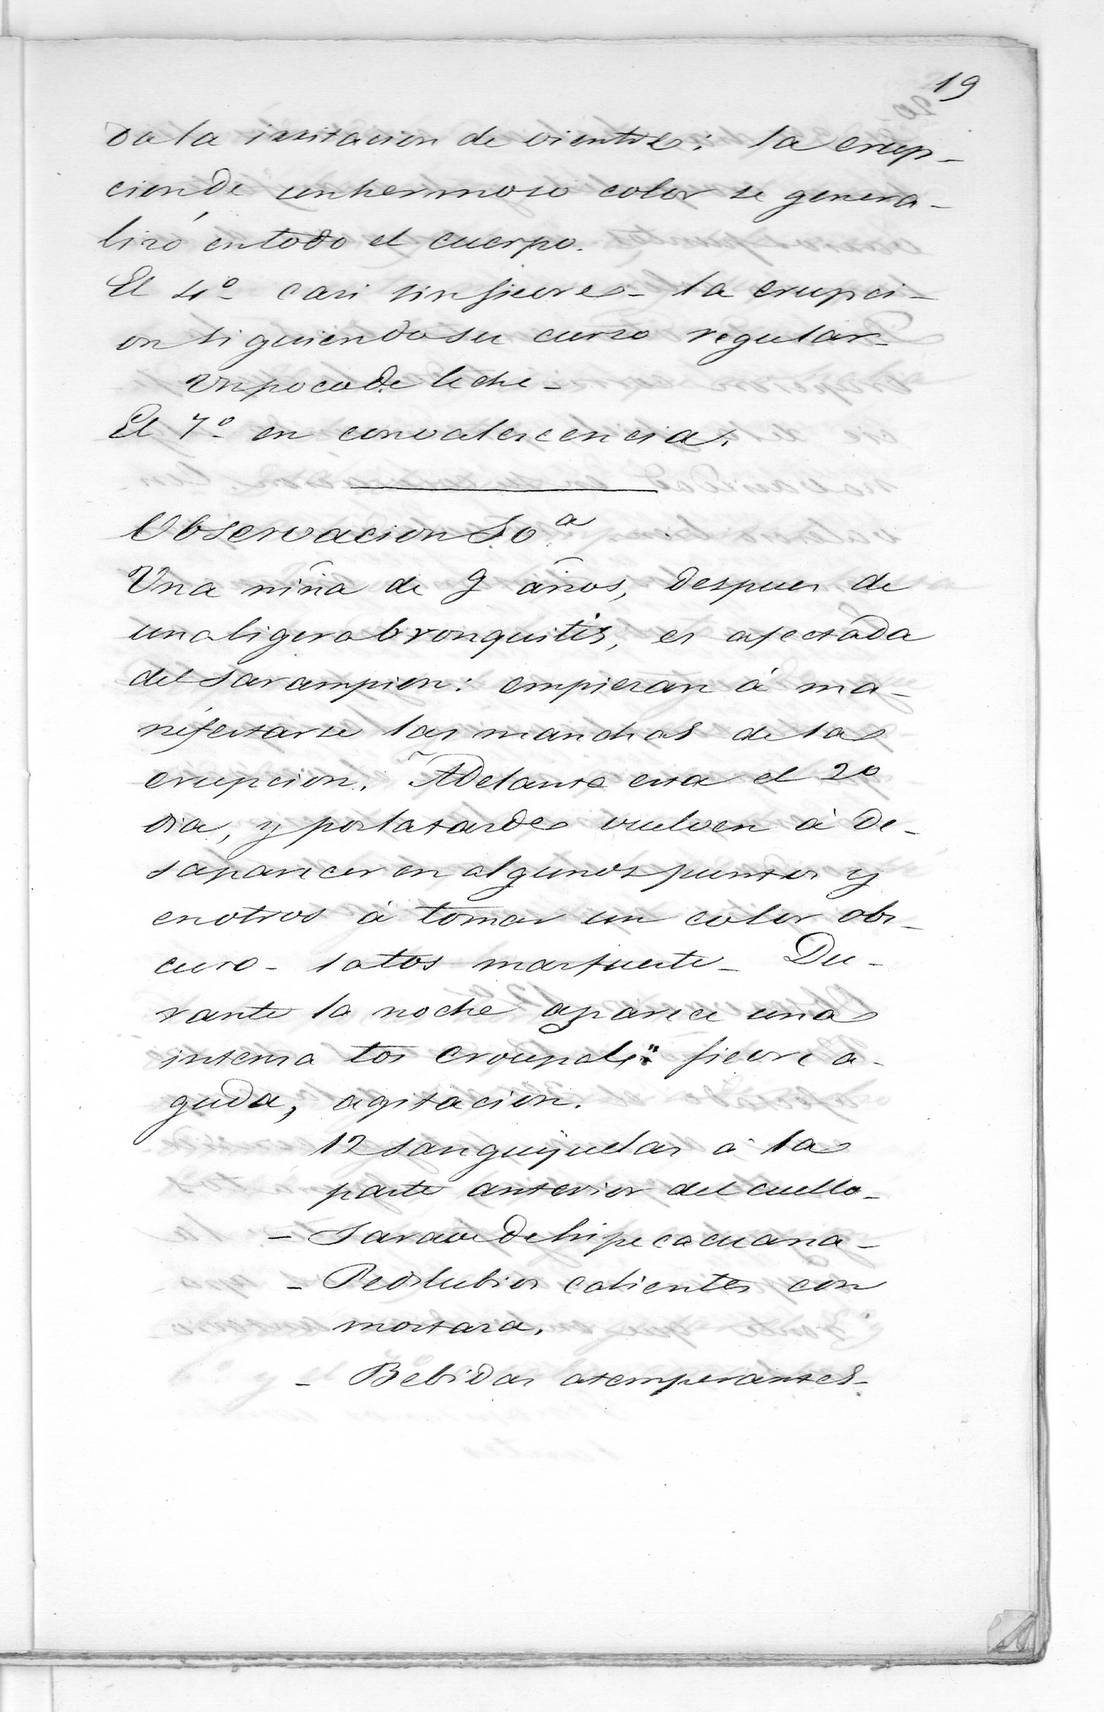 19
da la irritacion de vientre: la erup-
cion de un hermoso color se genera-
lizó en todo el cuerpo.
El 4º- casi sin fievre - la erupci-
on siguiendo su curso regular-
Un poco de leche-
El 7º- en convalescencia.
Observacion 10ª
Una niña de 9 años, despues de
una ligera bronquitis, es afectada
del sarampion: empiezan á ma-
nifestarse las manchas de la
erupcion. Adelanta esta el 2º
dia, y por la tarde vuelven á de-
saparecer en algunos puntos y
en otros á tomar un color obs-
curo - la tos mas fuerte - Du-
rante la noche aparece una
intensa tos croupal: fievre a-
guda, agitacion.
12 sanguijuelas á la
parte anterior del cuello-
- Jarave de hipecacuana-
- Pedilubios calientes con
mostaza.
- Bebidas atemperantes-